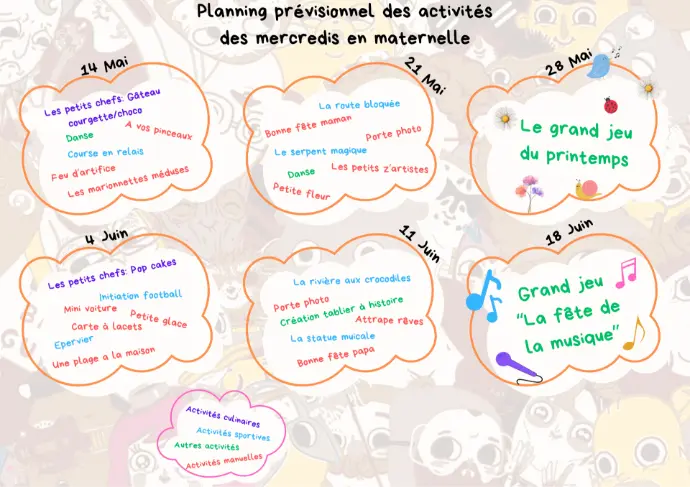 Planning prévisionnel des activités
des mercredis en maternelle
14 Mai
Les petits chefs: Gâteau
courgette/choco
A vos pinceaux
Danse
Course en relais
Feu d'artifice
Les marionnettes méduses
21 Mai
La route bloquée
Bonne fête maman
Porte photo
Le serpent magique
Danse
Les petits z'artistes
Petite fleur
28 Mai
Le grand jeu
du printemps
4 Juin
Les petits chefs: Pop cakes
Initiation football
Mini voiture
Petite glace
Carte à lacets
Epervier
Une plage a la maison
11 Juin
La rivière aux crocodiles
Porte photo
Création tablier à histoire
Attrape rêves
La statue muicale
Bonne fête papa
18 Juin
Grand jeu
"La fête de
la musique"
Activités culinaires
Activités sportives
Autres activités
Activités manuelles